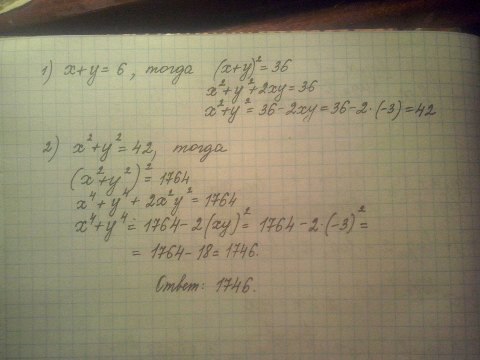 1) x+y=6, тогда (x+y)²=36
x²+y²+2xy=36
x²+y²=36-2xy=36-2·(-3)=42
2) x²+y²=42, тогда
(x²+y²)²=1764
x⁴+y⁴+2x²y²=1764
x⁴+y⁴=1764-2(xy)²=1764-2·(-3)²=
=1764-18=1746.
Ответ: 1746.